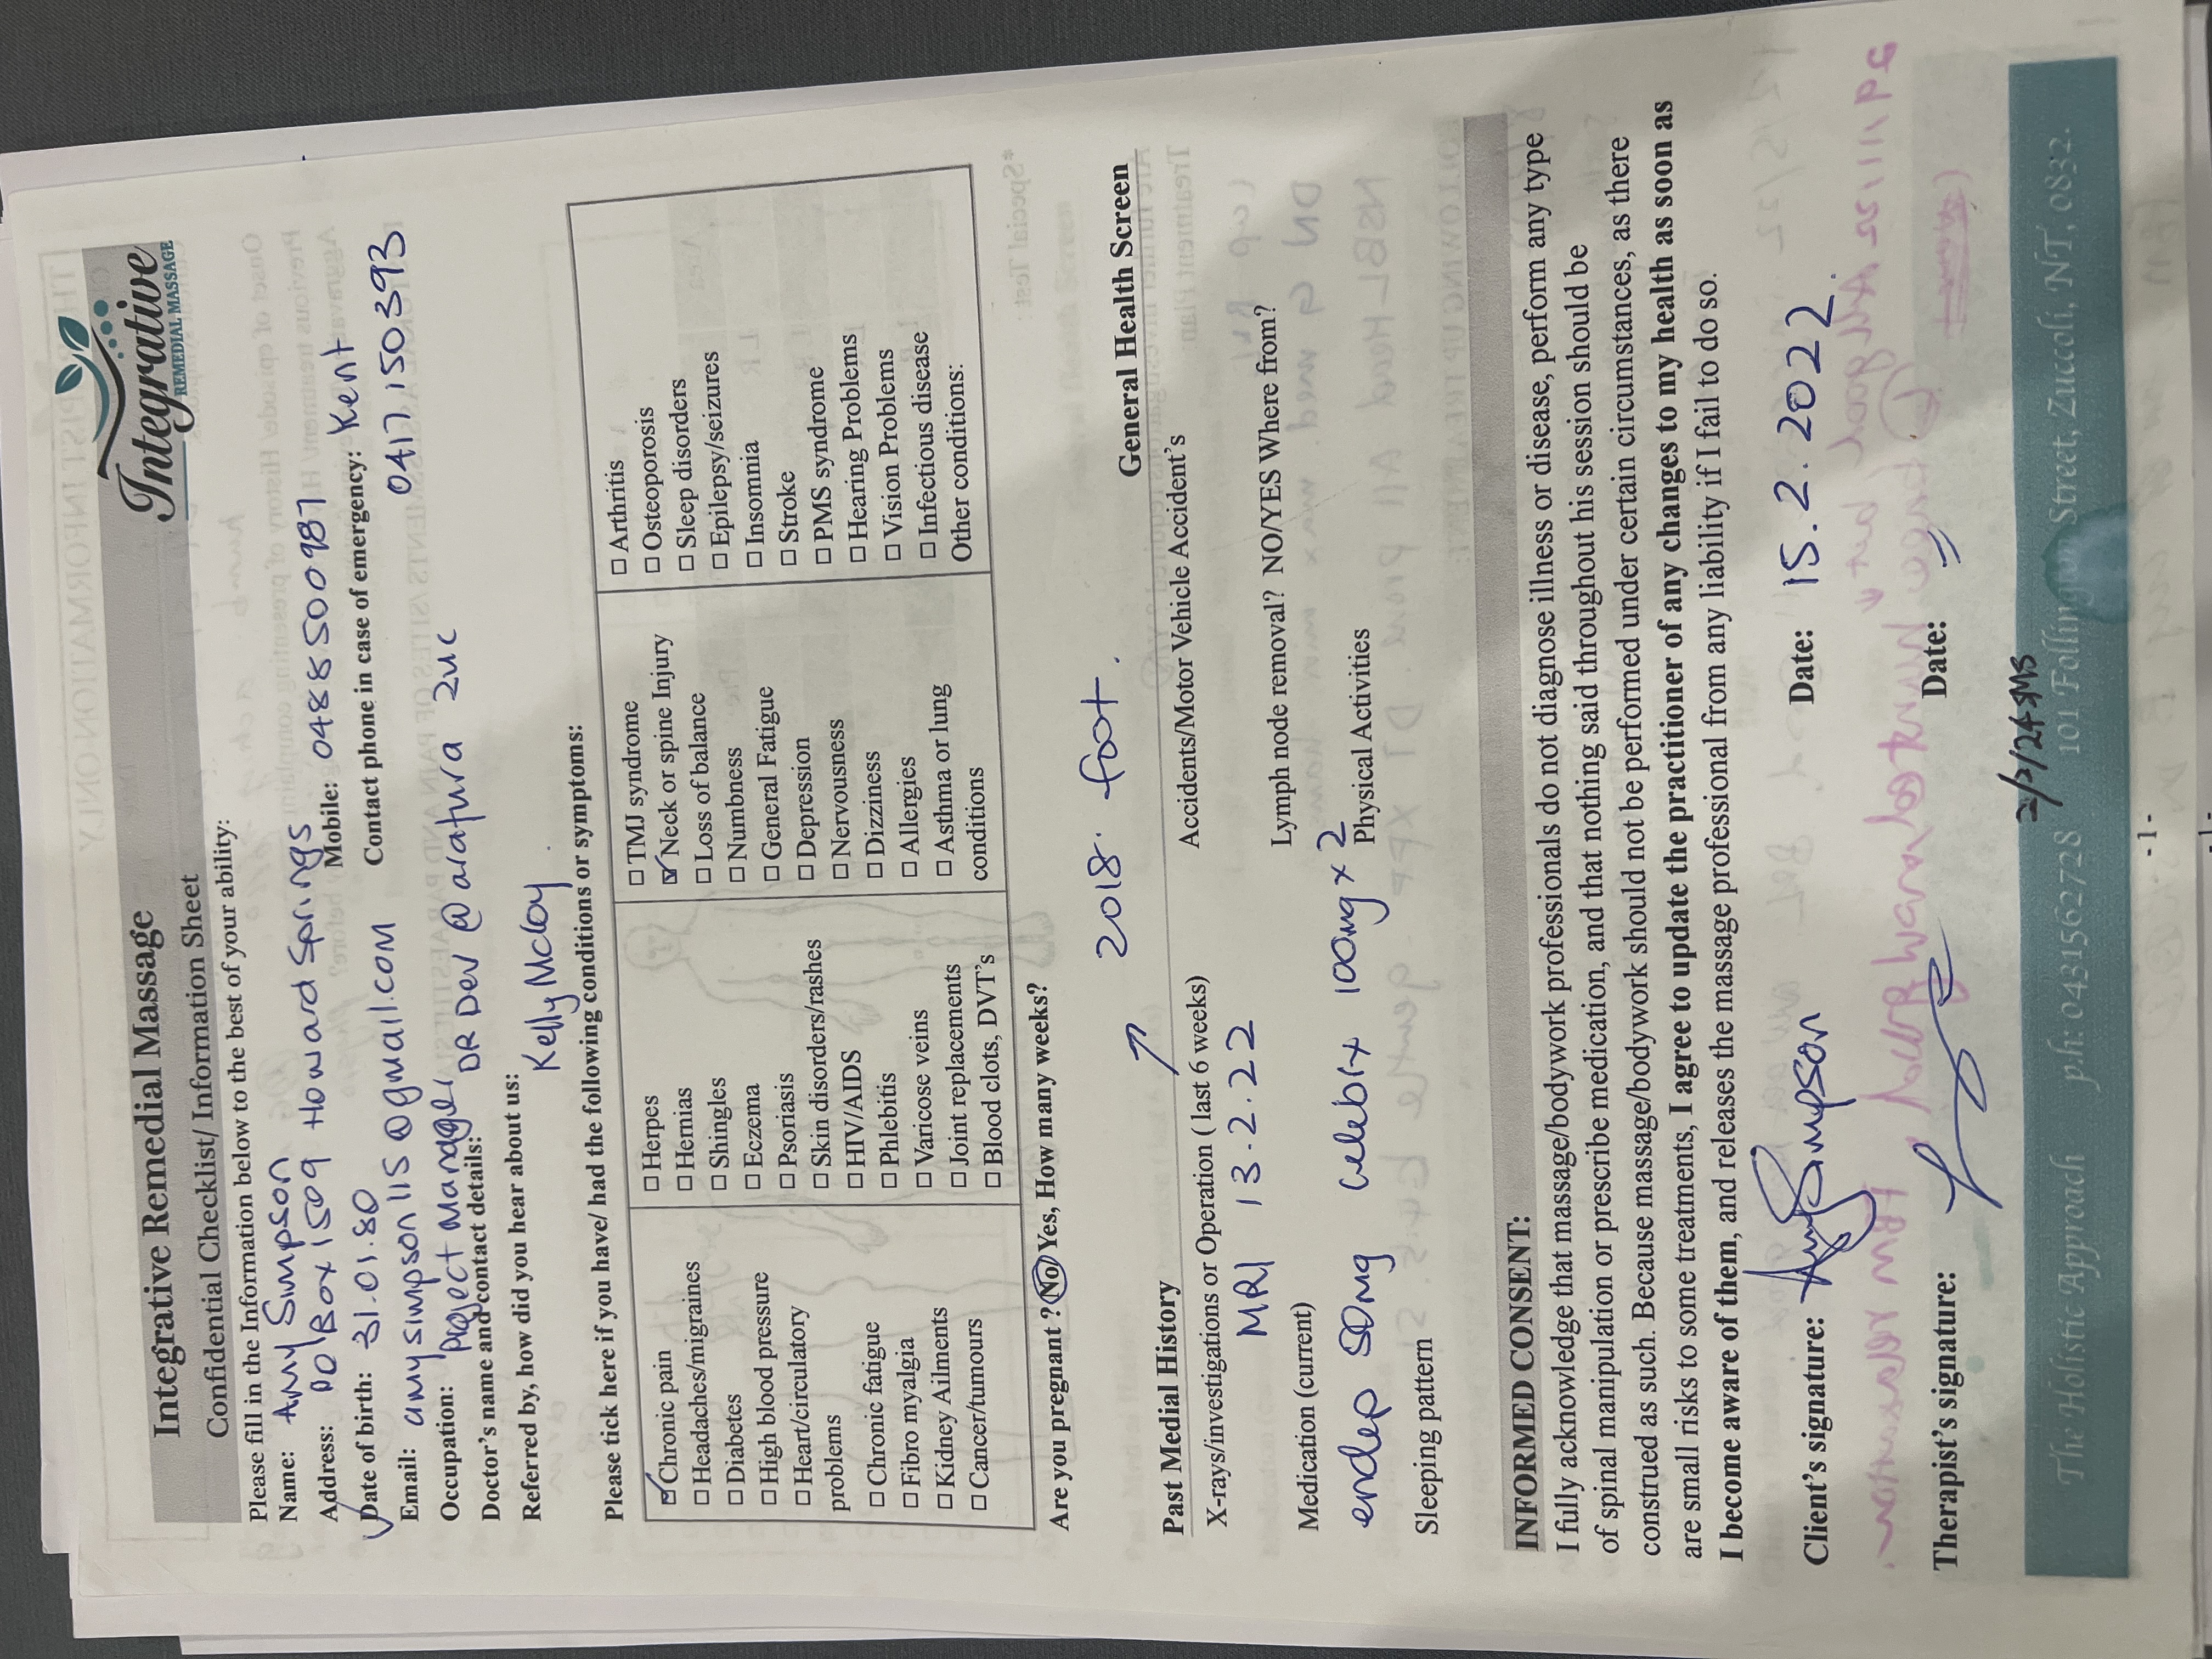 Integrative Remedial Massage
Confidential Checklist/ Information Sheet
Integrative
REMEDIAL MASSAGE
Please fill in the Information below to the best of your ability:
Name: Amy Simpson
Address: PO Box 1509 Howard Springs
Mobile: 0488500987
Date of birth: 31.01.80
Contact phone in case of emergency: Kent
0417 150393
Email: amysimpson115@gmail.com
Occupation: Project Manager
Doctor's name and contact details: DR Dev @ arafura zuc
Referred by, how did you hear about us:
Kelly Mcloy
Please tick here if you have/ had the following conditions or symptoms:
☑ Chronic pain
☐ Headaches/migraines
☐ Diabetes
☐ High blood pressure
☐ Heart/circulatory
problems
☐ Chronic fatigue
☐ Fibro myalgia
☐ Kidney Ailments
☐ Cancer/tumours
☐ Herpes
☐ Hernias
☐ Shingles
☐ Eczema
☐ Psoriasis
☐ Skin disorders/rashes
☐ HIV/AIDS
☐ Phlebitis
☐ Varicose veins
☐ Joint replacements
☐ Blood clots, DVT's
☐ TMJ syndrome
☑ Neck or spine Injury
☐ Loss of balance
☐ Numbness
☐ General Fatigue
☐ Depression
☐ Nervousness
☐ Dizziness
☐ Allergies
☐ Asthma or lung
conditions
☐ Arthritis
☐ Osteoporosis
☐ Sleep disorders
☐ Epilepsy/seizures
☐ Insomnia
☐ Stroke
☐ PMS syndrome
☐ Hearing Problems
☐ Vision Problems
☐ Infectious disease
Other conditions:
Are you pregnant ? No/Yes, How many weeks?
2018. foot.
Past Medial History
General Health Screen
X-rays/investigations or Operation ( last 6 weeks)
Accidents/Motor Vehicle Accident's
MRI 13.2.22
Medication (current)
Lymph node removal? NO/YES Where from?
endep 50mg celebix 100mg x 2
Physical Activities
Sleeping pattern
INFORMED CONSENT:
I fully acknowledge that massage/bodywork professionals do not diagnose illness or disease, perform any type
of spinal manipulation or prescribe medication, and that nothing said throughout his session should be
construed as such. Because massage/bodywork should not be performed under certain circumstances, as there
are small risks to some treatments, I agree to update the practitioner of any changes to my health as soon as
I become aware of them, and releases the massage professional from any liability if I fail to do so.
Client's signature: Amy Simpson Date: 15.2.2022.
Therapist's signature: Date:
The Holistic Approach ph: 0431562728 101 Follington Street, Zuccoli, NT, 0832.
- 1 -